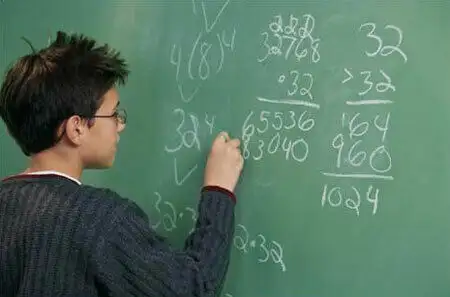 4(8)⁴
32⁴
32·3
2·32
222
32768
·32
65536
83040
32
>32
164
960
1024